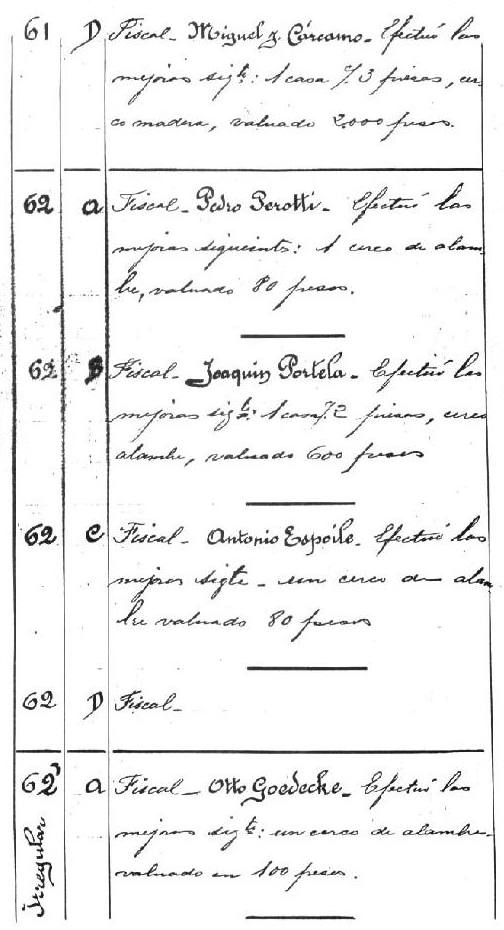 61 D Fiscal - Miguel z. Cárcamo - Efectuó las
mejoras sigte: 1 casa c/. 3 piezas, cer-
co madera, valuado 2.000 pesos.
62 a Fiscal - Pedro Perotti - Efectuó las
mejoras siguients: 1 cerco de alam-
bre, valuado 80 pesos.
62 B Fiscal - Joaquin Portela - Efectuó las
mejoras sigte: 1 casa c/. 2 piezas, cerco
alambre, valuado 600 pesos
62 C Fiscal - Antonio Espóile - Efectuó las
mejoras sigte - un cerco de alam
bre valuado 80 pesos
62 D Fiscal -
62' a Fiscal - Otto Goedecke - Efectuó las
Irregular mejoras sigte: un cerco de alambre -
valuado en 100 pesos.